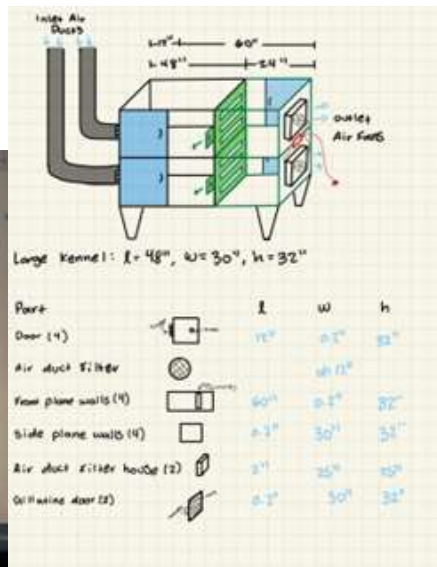 Inlet Air
Ducts
60"
48"
24"
outlet
Air Fans
Large Kennel: l= 48", w= 30", h= 32"
Part l w h
Door (4) 12" 0.2" 32"
Air duct filter
Front plane walls (4) 60" 0.2" 32"
Side plane walls (4) 0.2" 30" 32"
Air duct filter house (2) 2" 25" 25"
Guillotine door (2) 0.2" 30" 32"